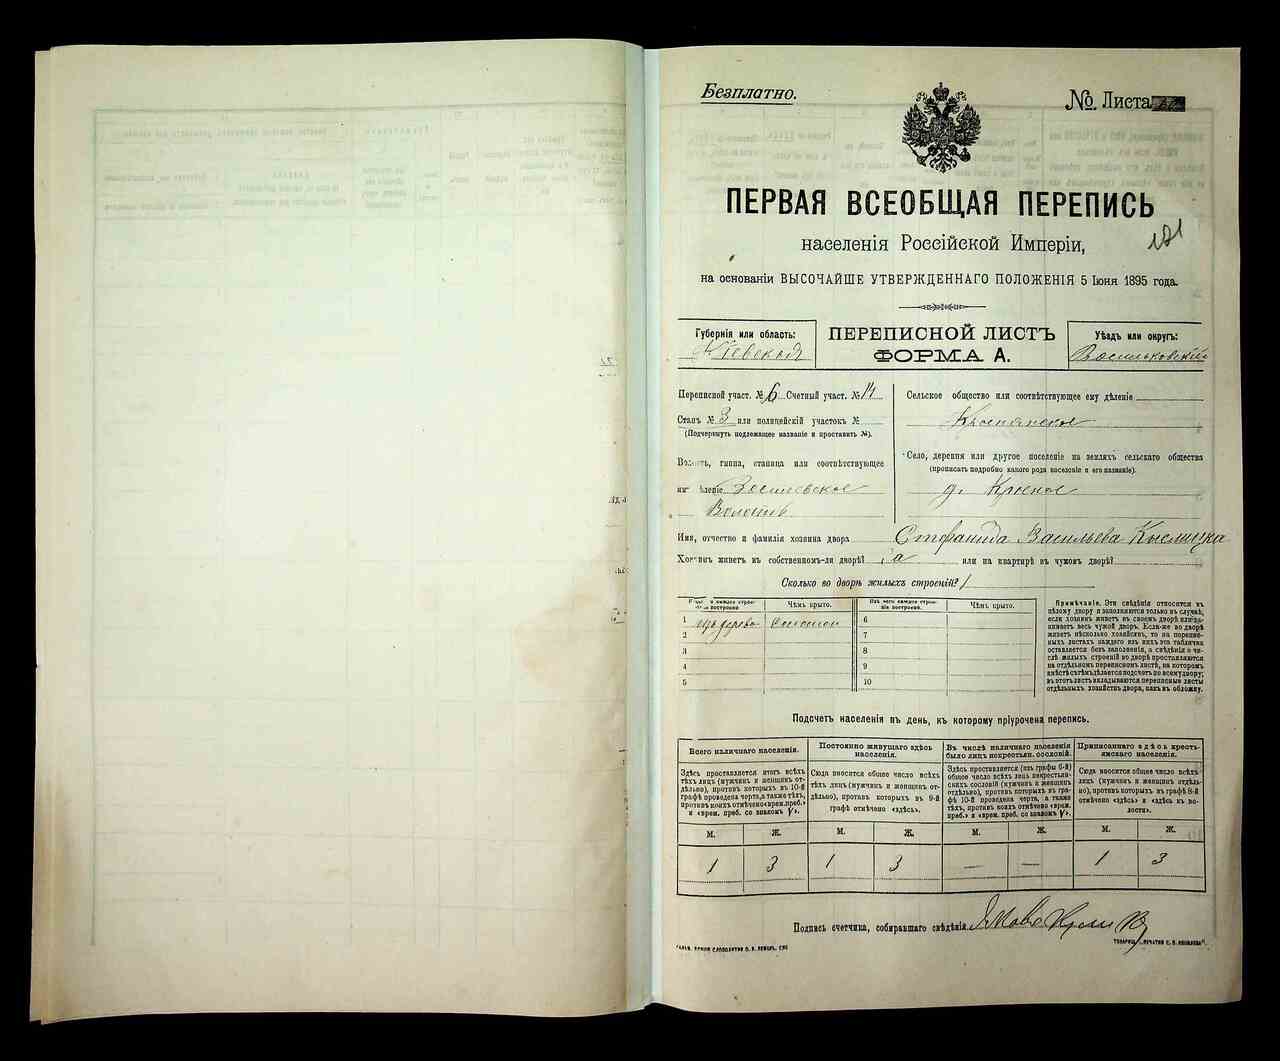 Безплатно.
№ Листа
ПЕРВАЯ ВСЕОБЩАЯ ПЕРЕПИСЬ
населенія Россійской Имперіи,
121
на основаніи ВЫСОЧАЙШЕ УТВЕРЖДЕННАГО ПОЛОЖЕНІЯ 5 Іюня 1895 года.
Губернія или область:
Кіевская
ПЕРЕПИСНОЙ ЛИСТЪ
ФОРМА А.
Уѣздъ или округъ:
Васильковскій
Переписной участ. № 6 Счетный участ. № 14
Станъ № 3 или полицейскій участокъ №
(Подчеркнуть подлежащее названіе и проставить №).
Волость, гмина, станица или соотвѣтствующее
имъ дѣленіе
Волость
Сельское общество или соотвѣтствующее ему дѣленіе
Село, деревня или другое поселеніе на земляхъ сельскаго общества
(прописать подробно какого рода населеніе и его названіе).
д.
Имя, отчество и фамилія хозяина двора Стефанида Васильева
Хозяинъ живетъ въ собственномъ-ли дворѣ? да или на квартирѣ въ чужомъ дворѣ?
Сколько во дворѣ жилыхъ строеній? 1
Изъ чего каждое строеніе построено
Чѣмъ крыто.
Изъ чего каждое строеніе построено.
Чѣмъ крыто.
1 изъ дерева Соломой 6
2 7
3 8
4 9
5 10
Примѣчаніе. Эти свѣдѣнія относятся къ
цѣлому двору и заполняются только въ случаѣ,
если хозяинъ живетъ въ своемъ дворѣ или занимаетъ
весь чужой дворъ. Если-же во дворѣ
живетъ нѣсколько хозяйствъ, то на переписныхъ
листахъ каждаго изъ нихъ эта табличка
оставляется безъ заполненія, а свѣдѣнія о числѣ
жилыхъ строеній во дворѣ проставляются
на отдѣльномъ переписномъ листѣ, на которомъ
вмѣстѣ съ тѣмъ дѣлается подсчетъ по всему двору;
въ этотъ листъ вкладываются переписные листы
отдѣльныхъ хозяйствъ двора, какъ въ обложку.
Подсчетъ населенія въ день, къ которому пріурочена перепись.
Всего наличнаго населенія.
Здѣсь проставляется итогъ всѣхъ
тѣхъ лицъ (мужчинъ и женщинъ отдѣльно),
противъ которыхъ въ 10-й
графѣ проведена черта, а также тѣхъ,
противъ коихъ отмѣчено «врем. преб.»
и «врем. преб. со знакомъ V».
Постоянно живущаго здѣсь
населенія.
Сюда вносится общее число всѣхъ
тѣхъ лицъ (мужчинъ и женщинъ отдѣльно),
противъ которыхъ въ 9-й
графѣ отмѣчено «здѣсь».
Въ числѣ наличнаго населенія
было лицъ некрестьян. сословій.
Здѣсь проставляется (изъ графы 6-й)
общее число всѣхъ лицъ некрестьянскихъ
сословій (мужчинъ и женщинъ
отдѣльно), противъ которыхъ въ графѣ
10-й проведена черта, а также
тѣхъ, противъ коихъ отмѣчено «врем.
преб.» и «врем. преб. со знакомъ V».
Приписаннаго здѣсь крестьянскаго
населенія.
Сюда вносится общее число всѣхъ
лицъ (мужчинъ и женщинъ отдѣльно),
противъ которыхъ въ графѣ 8-й
отмѣчено «здѣсь» и «здѣсь къ волости».
М. Ж. М. Ж. М. Ж. М. Ж.
1 3 1 3 — — 1 3
Подпись счетчика, собиравшаго свѣдѣнія